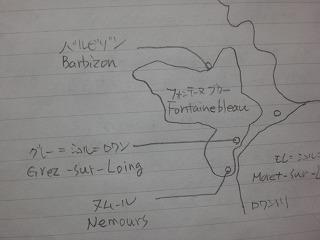 バルビゾン
Barbizon
フォンテーヌブロー
Fontainebleau
グレー=シュル=ロワン
Grez-sur-Loing
モレ=シュル=
Moret-sur-L
ヌムール
Nemours
ロワン川